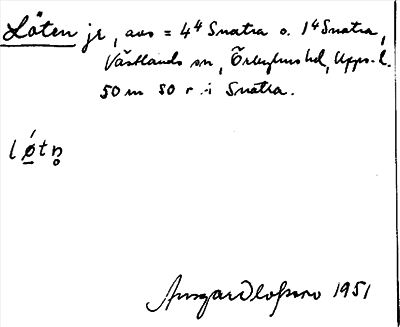 Löten jr, avs = 4⁴ Snatra o. 1⁴ Snatra,
Västlands sn, Örbyhus hd, Upps. l.
50 m SO r i Snatra.
lǿ̲tn̥
Ansgar Olofsson 1951